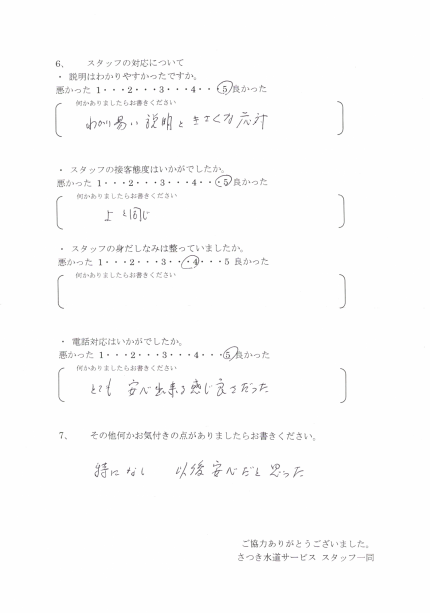 6、 スタッフの対応について
・ 説明はわかりやすかったですか。
悪かった 1・・・2・・・3・・・4・・・5 良かった
何かありましたらお書きください
わかり易い説明ときさくな応対
・ スタッフの接客態度はいかがでしたか。
悪かった 1・・・2・・・3・・・4・・・5 良かった
何かありましたらお書きください
上と同じ
・ スタッフの身だしなみは整っていましたか。
悪かった 1・・・2・・・3・・・4・・・5 良かった
何かありましたらお書きください
・ 電話対応はいかがでしたか。
悪かった 1・・・2・・・3・・・4・・・5 良かった
何かありましたらお書きください
とても 安心出来る感じ良さだった
7、 その他何かお気付きの点がありましたらお書きください。
特になし 以後安心だと思った
ご協力ありがとうございました。
さつき水道サービス スタッフ一同